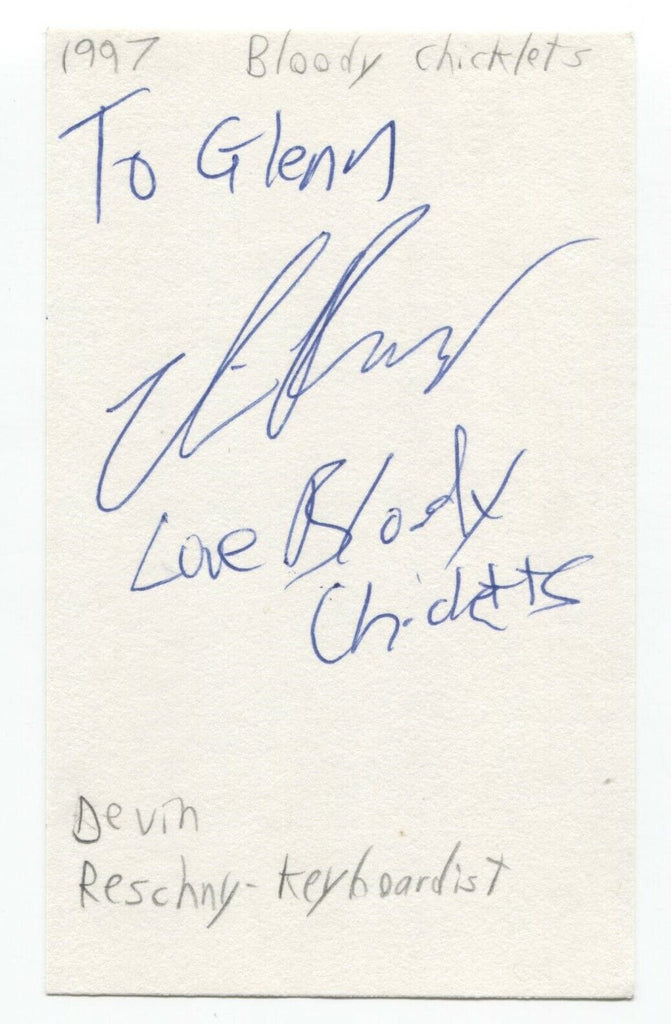 1997 Bloody Chicklets
To Glenn
Love Bloody
Chicletts
Devin
Reschny - Keyboardist